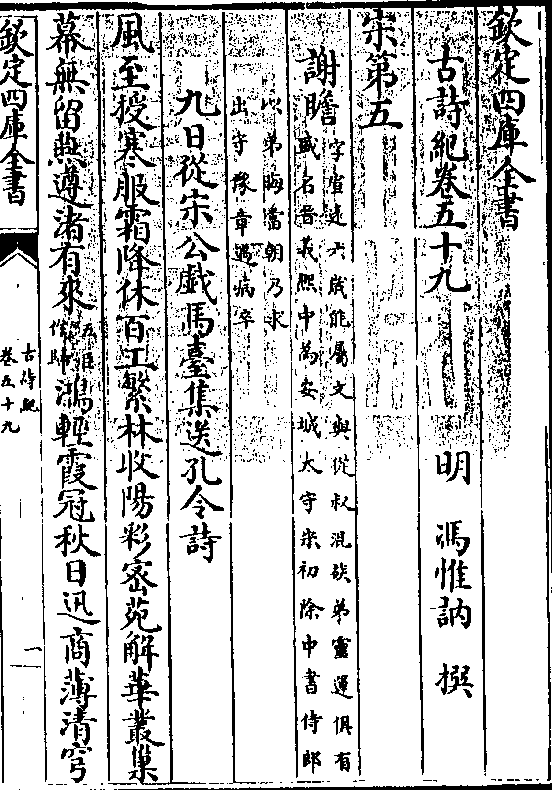 欽定四庫全書
古詩紀卷五十九　明　馮惟訥　撰
宋第五
謝瞻
字宣逺六歳能屬文與從叔混族弟靈運俱有
盛名晉義熙中為安城太守宋初除中書侍郎
以弟晦當朝乃求
出守豫章遇病卒
九日從宋公戲馬臺集送孔令詩
風至授寒服霜降休百工繁林收陽彩密苑解華叢巢
幕無留燕遵渚有來
五臣
作歸
鴻輕霞冠秋日迅商薄清穹
欽定四庫全書
古詩紀
卷五十九
一